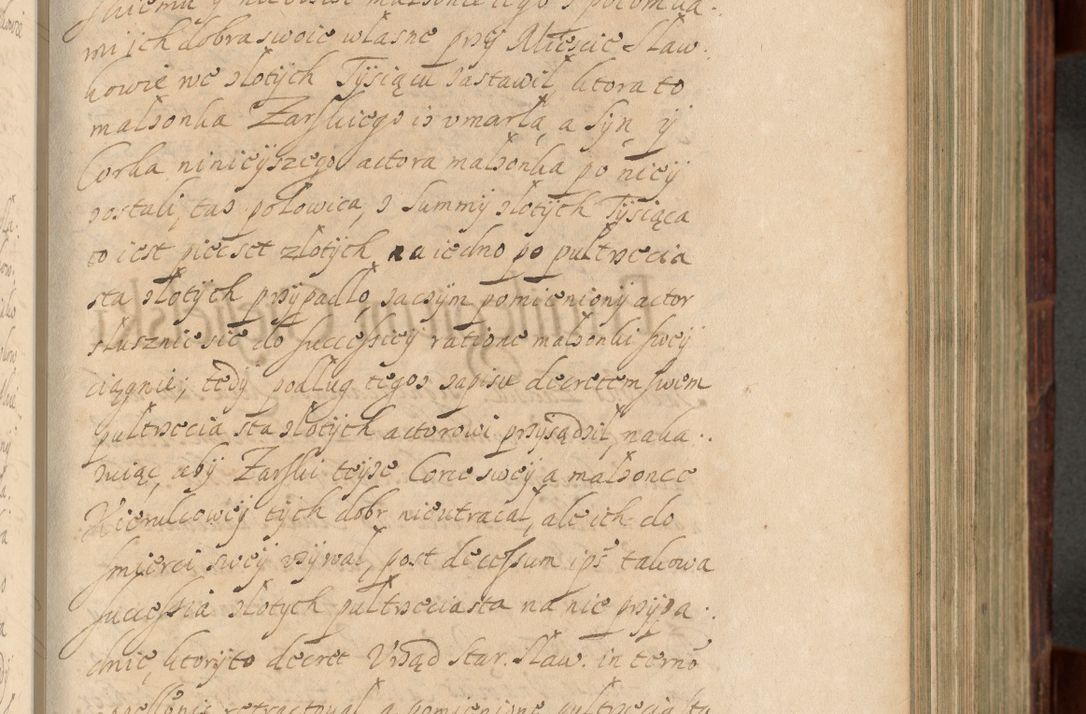 mi ich dobra swoie własne przy Miescie Sław.
kowie we złotych Tysiącu zastawił, ktora to
małzonka Zarskiego iż vmarła, a Syn y
Corka ninieyszego actora małzonka po niey
zostali, tas połowica, z Summy złotych Tysiąca
to iest piecset złotych na iedno po pułtrzecia
sta złotych przypadło zaczym pomieniony actor
słusznie sie do successiey ratione małzonki swey
ciągnie, tedy podług tegoz zapisu decretem swem
pułtrzecia sta złotych actorowi przysądził, naka.
zuiąc, aby Zarski teyze Corce swey a małzonce
Kierulcowey tych dobr nieutracał, ale ich do
smierci swey vzywał, post decessum ips takowa
successia złotych pułtrzeciasta na nie przypa.
dnie, ktoryto decret Vrząd Star. Sław. in terno